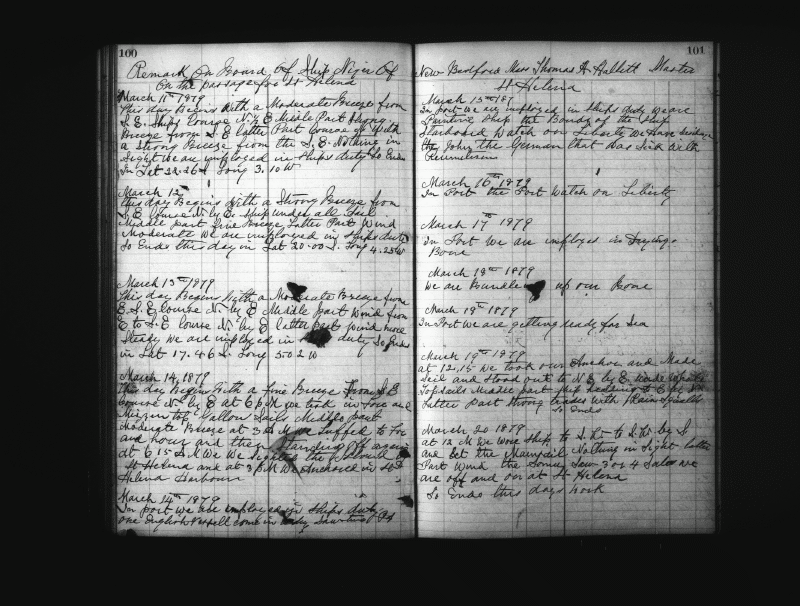 100
Remark On Board Of Ship Niger Of
On the passage for St Helena
March 11th 1879
This day Begins With a Moderate Breeze from
S.E. Ship's Course N. by E Middle Part Strong
Breeze from S E latter Part Course N With
a Strong Breeze from the S.E. Nothing in
Sight We are imployed in ships duty So Ends
In Lat 22.26 S Long 3.10 W
March 12
this day Begins With a Strong Breeze from
S E Course N. by E. Ship under all Sail
Middle part fine Breeze Latter Part Wind
Moderate We are imployed in Ships duty
So Ends this day in Lat 20.00 S. Long 4.25 W
March 13th 1879
this day Begins With a Moderate Breeze from
E.S.E Course N. by E Middle Part Wind from
E to S.E Course N. by E latter part Wind more
Steady We are imployed in duty So Ends
in Lat 17.46 S. Long 5.02 W
March 14, 1879
This day Begins With a fine Breeze from S E
Course N. by E at 6 P.M We took in Fore and
Mizzen top Gallon Sails Middle part
Moderate Breeze at 3 A M We Luffed to for
and hour and then
at 6 15 A M We We Sighted the
St Helena and at 3 P.M We Anchored in St
Helena Harbour
March 14th 1879
In port We are imployed in Ships duty
one English Vessell come in
101
New Bedford Mass Thomas H. Hallett Master
St Helena
March 15th 187
In port We are imployed in Ships duty We are
Painting Ship the Boady of the Ship
Starboard Watch on Liberty We Have
they John the German that was Sick With
Rumatism
March 16th 1879
In Port the Port Watch on Liberty
March 17th 1879
In Port We are imployed in Drying
Bone
March 18th 1879
We are Bundle up our Bone
March 19th 1879
In Port We are getting ready for Sea
March 19th 1879
at 12,15 We took our Anchor and Made
Sail and Stood out to N.E by E
Topsails Middle part Ship heading to E by N
Latter Part Strong trades with
So Ends
March 20 1879
at 12 M We Wore Ship to S.W. to S.W. by S
and Set the Mainsail Nothing in Sight latter
Part Wind the Same Saw 3 or 4 Sales We
are off and on at St Helena
So Ends this days Work